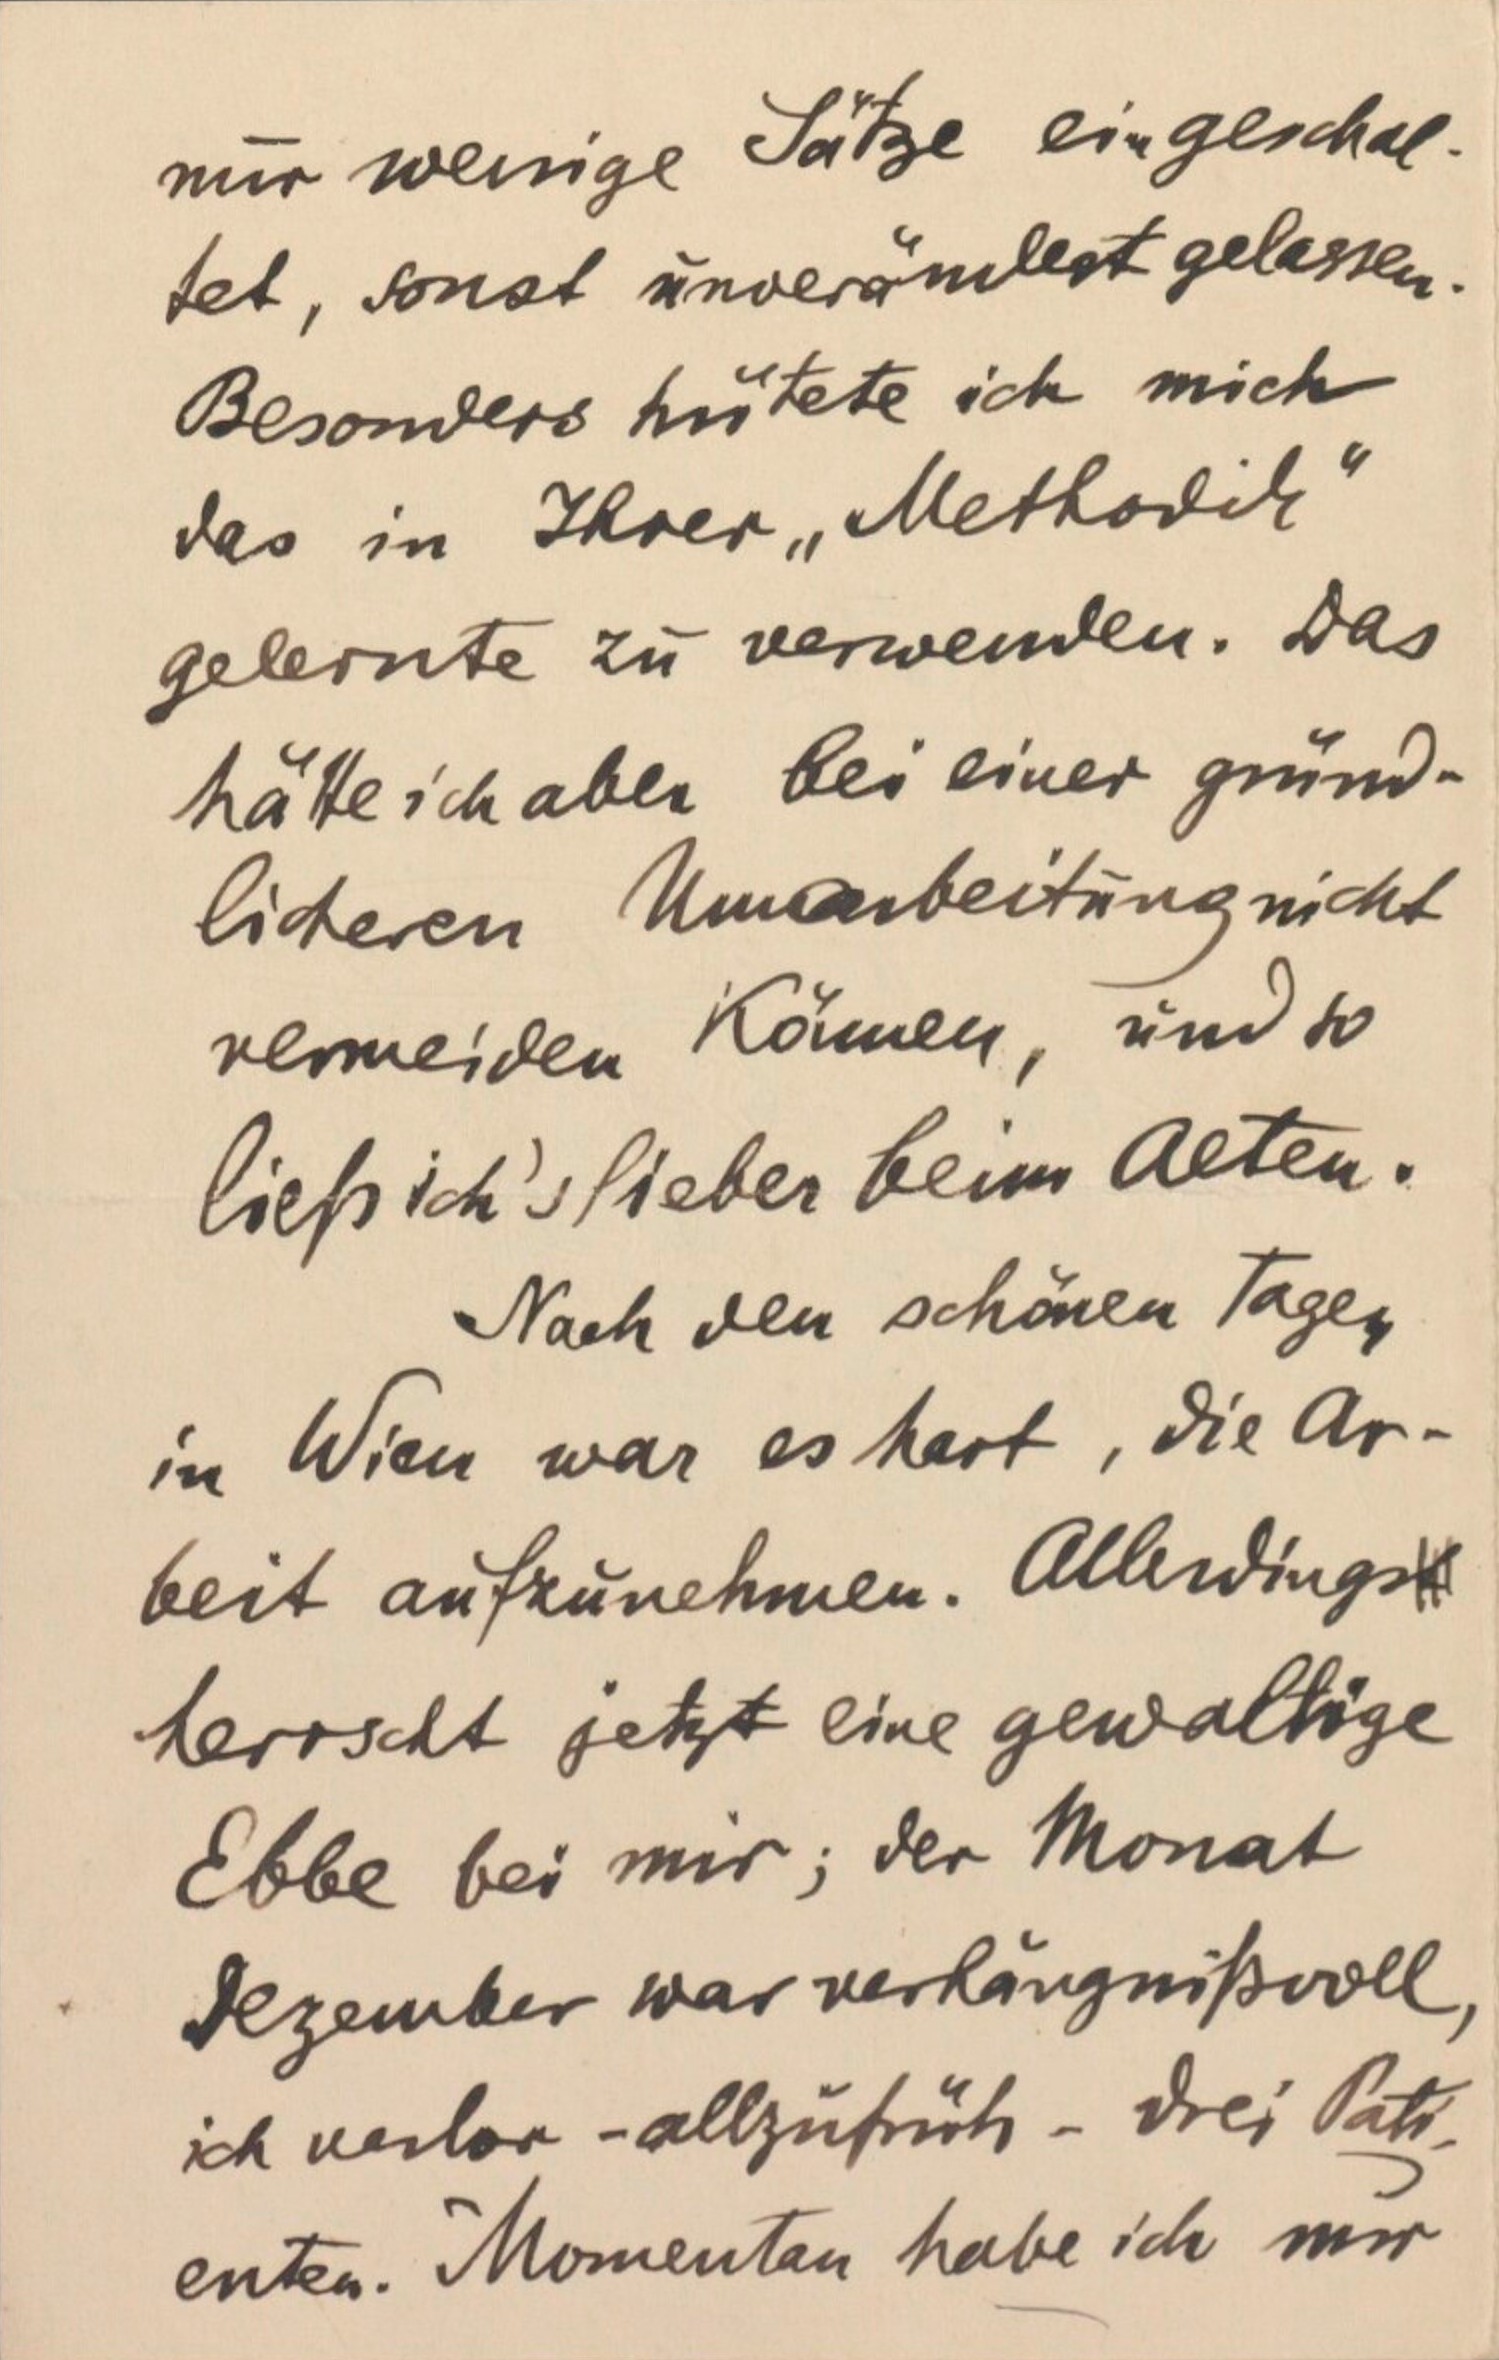 nur wenige Sätze eingeschal-
tet, sonst unverändert gelassen.
Besonders hütete ich mich
das in Ihrer „Methodik“
gelernte zu verwenden. Das
hätte ich aber bei einer gründ-
licheren Umarbeitung nicht
vermeiden Können, und so
ließ ich's lieber beim Alten.
Nach den schönen Tagen
in Wien war es hart, die Ar-
beit aufzunehmen. Allerdings
herrscht jetzt eine gewaltige
Ebbe bei mir; der Monat
Dezember war verhängnißvoll,
ich verlor - allzufrüh - drei Pati-
enten. Momentan habe ich nur